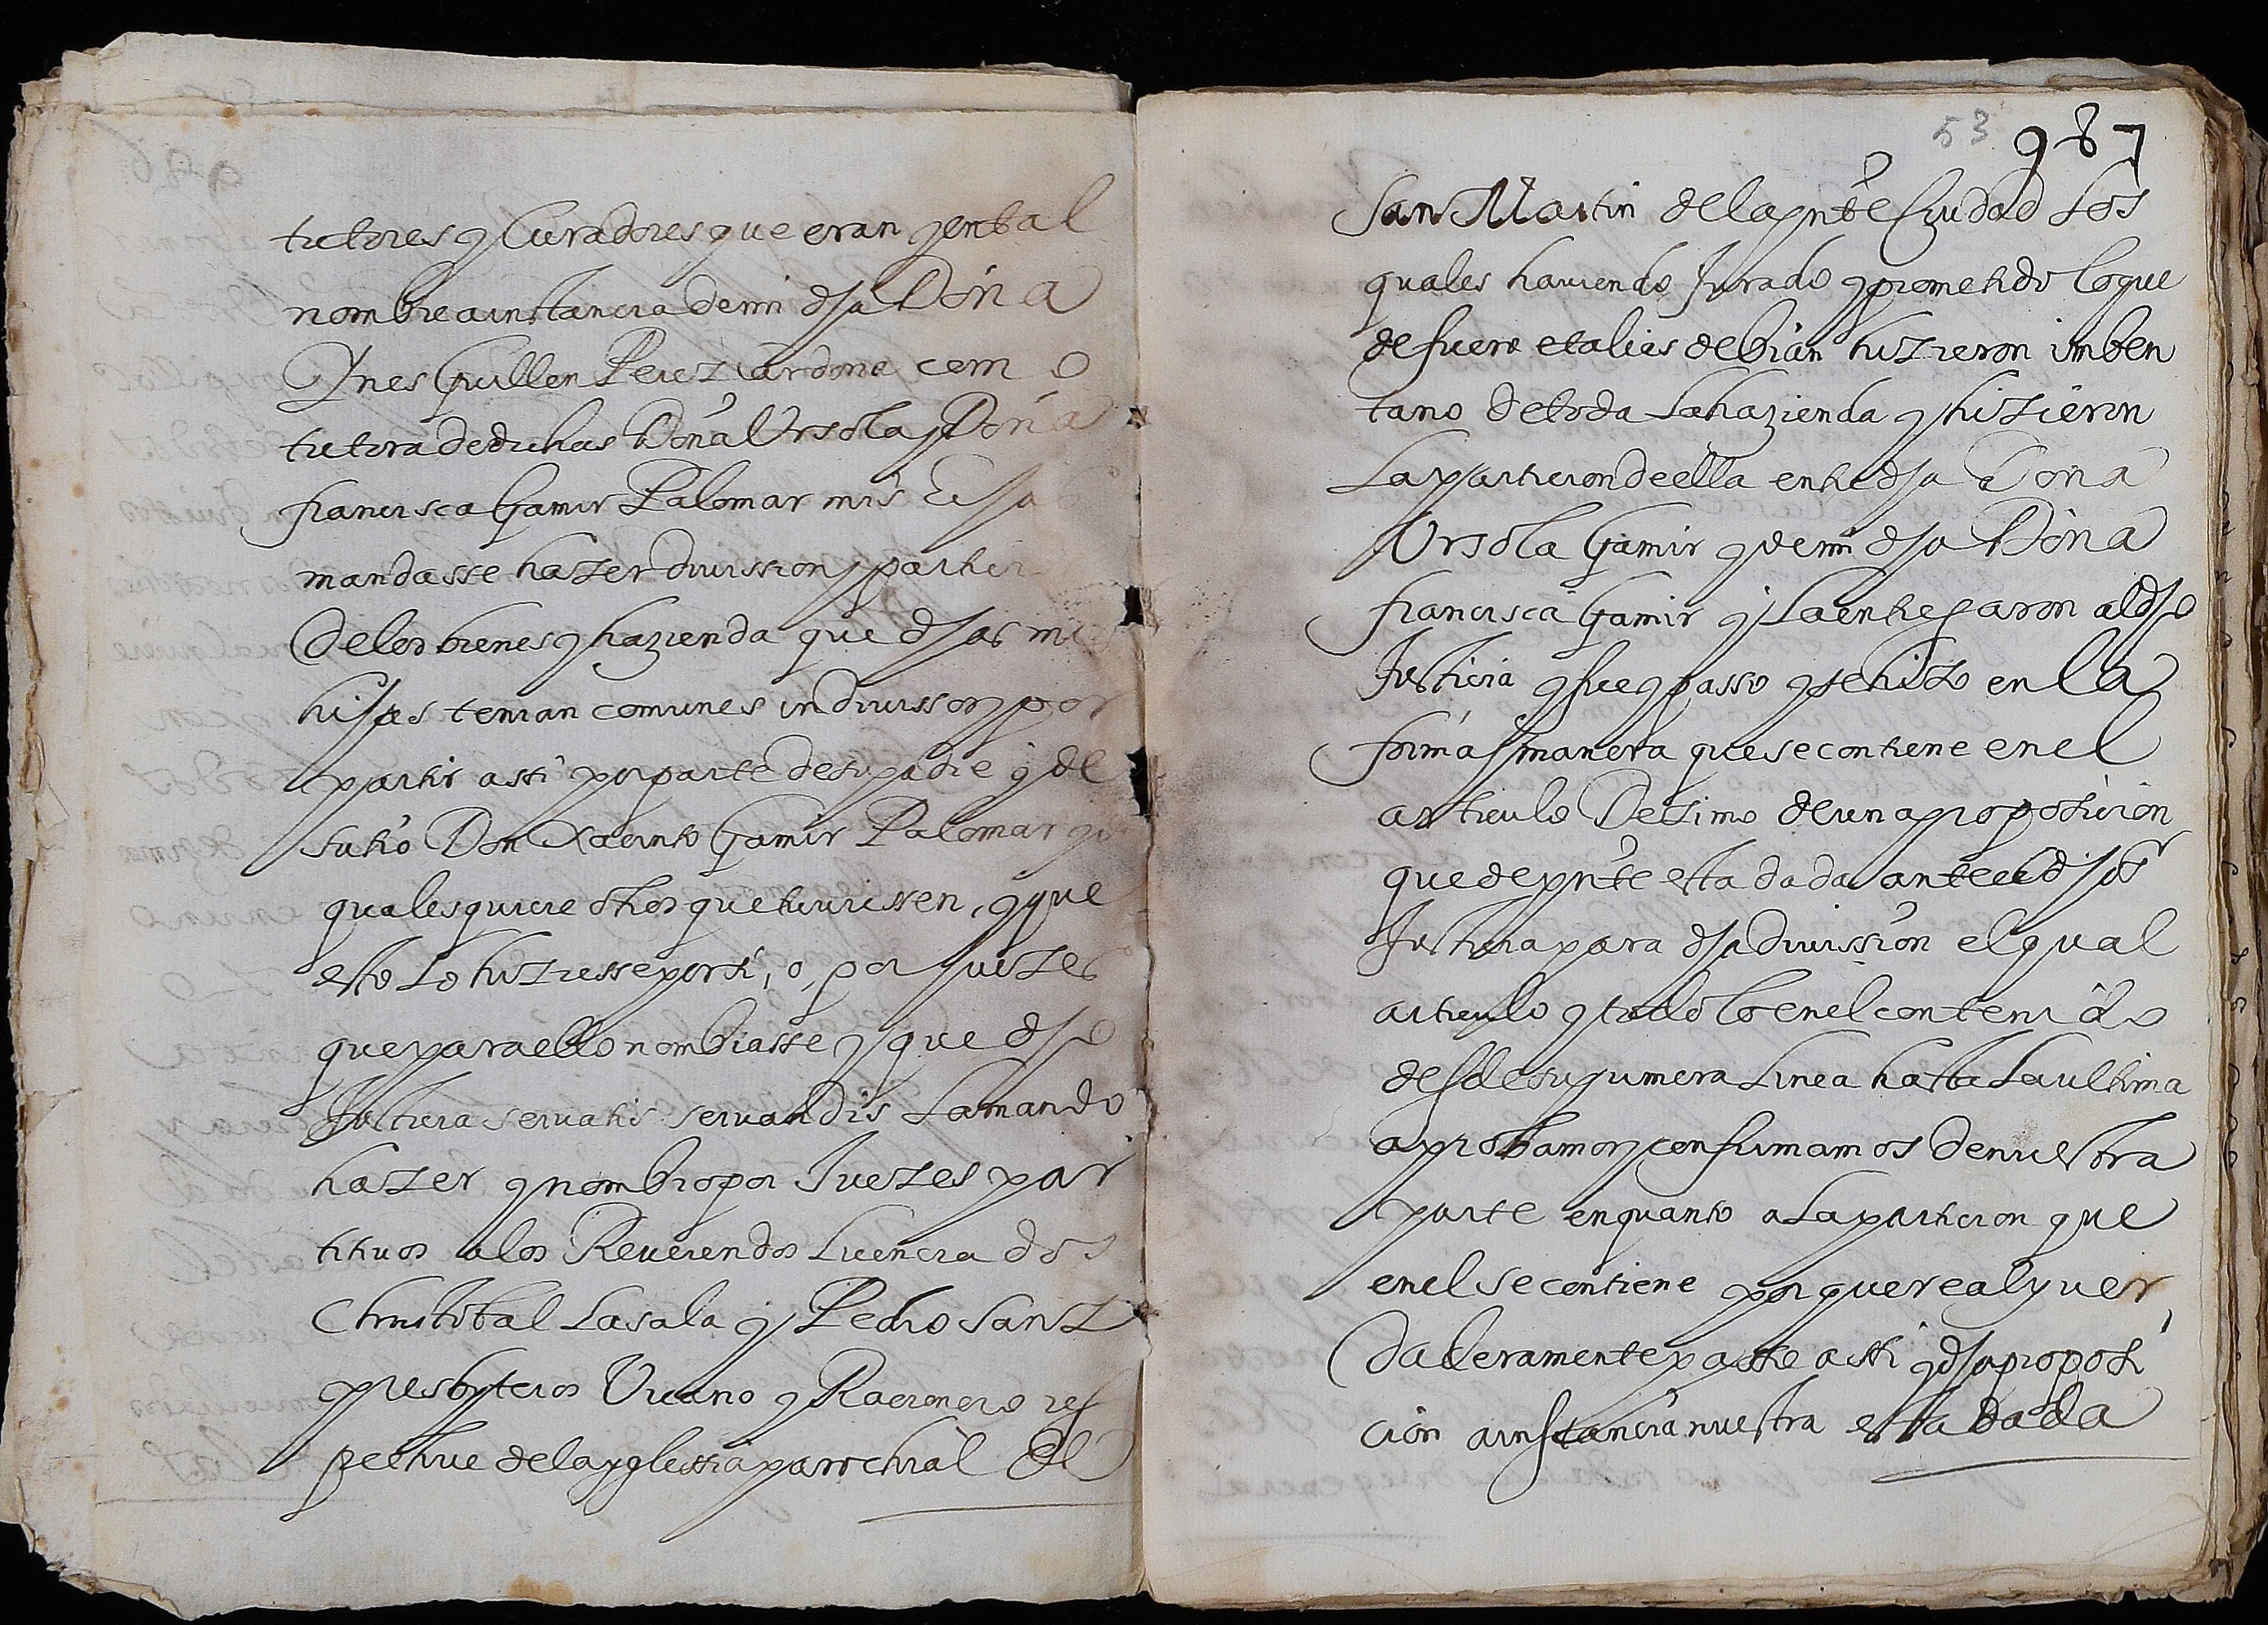 tutores y Curadores que eran y en tal
nombre a instancia de mi dha Doña
Ynes Guillen Perez cardona como
tutora de dichas Doña Ursola y Doña
francisca Gamir Palomar mis
mandasse hazer division y partir
de los bienes y hazienda que dhas mis
hijas tenian comunes indivissos y por
partir assi por parte de su padre y de
su tio Don Xacinto Gamir Palomar
qualesquiere otros que tuviessen, y que
esto lo hiziesse por si, o, por Juezes
que para ello nombrasse y que dho
Justicia servatis servandis lo mando
hazer y nombro por Juezes par
titivos a los Reverendos Licenciados
Christobal Lasala y Pedro Sanz
presbyteros Vicario y Racionero res
pective de la yglessia parrochial de
53 987
San Martin de la pnte Ciudad Los
quales haviendo Jurado y prometido lo que
de fuero et alias debian hizieron imben
tario de toda La hazienda y hizieron
La particion de ella entre dha Doña
Ursola Gamir y de mi dha Doña
francisca Gamir y La entregaron al dho
Justicia y fue y passo y se hizo en la
forma y manera que se contiene en el
articulo Dezimo de una proposicion
que de pnte esta dada ante el dho
Justicia para dha division el qual
articulo y todo lo en el contenido
desde su primera Linea hasta La ultima
aprobamos y confirmamos de nuestra
parte en quanto a La particion que
en el se contiene por que real y ver
daderamente passo assi y dha proposi
cion a instancia nuestra esta dada